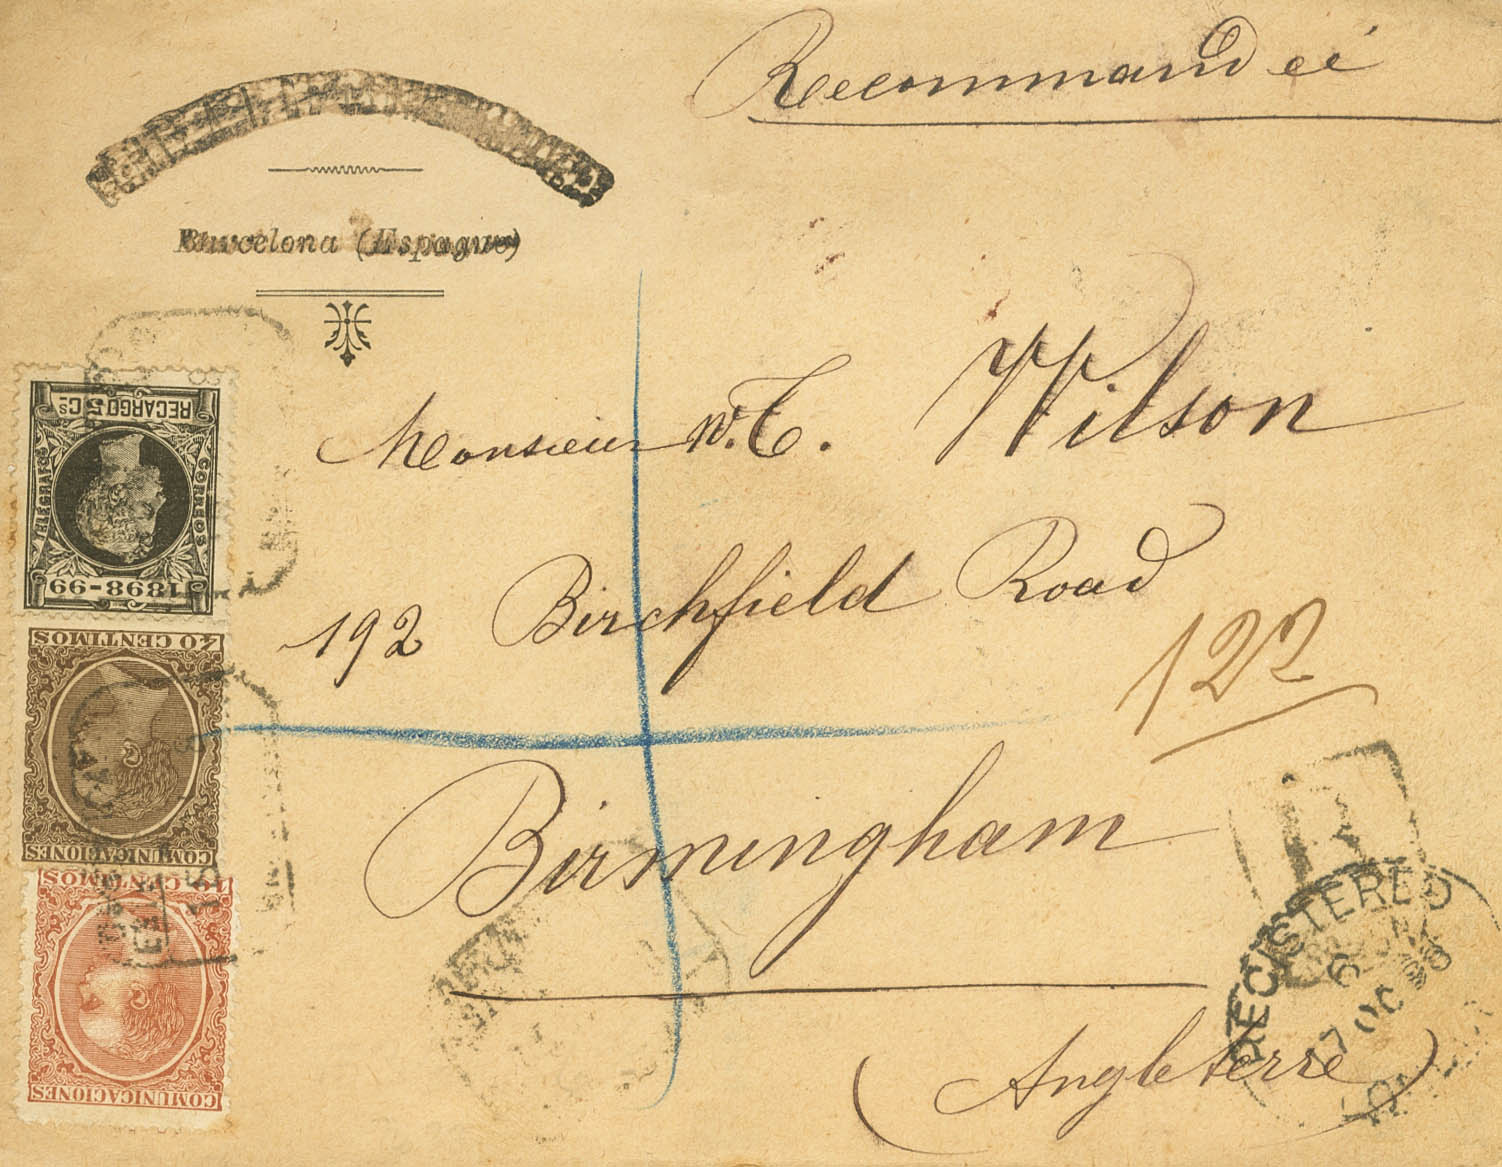 Recommandeé
Barcelona (Espagne)
RECARGO 5 Cs
TELEGRAFOS
CORREOS
1898-99
Monsieur W. T. Wilson
192 Birchfield Road
122
40 CENTIMOS
COMUNICACIONES
Birmingham
10 CENTIMOS
COMUNICACIONES
R
REGISTERED
6
17 OC 98
(Angleterre)